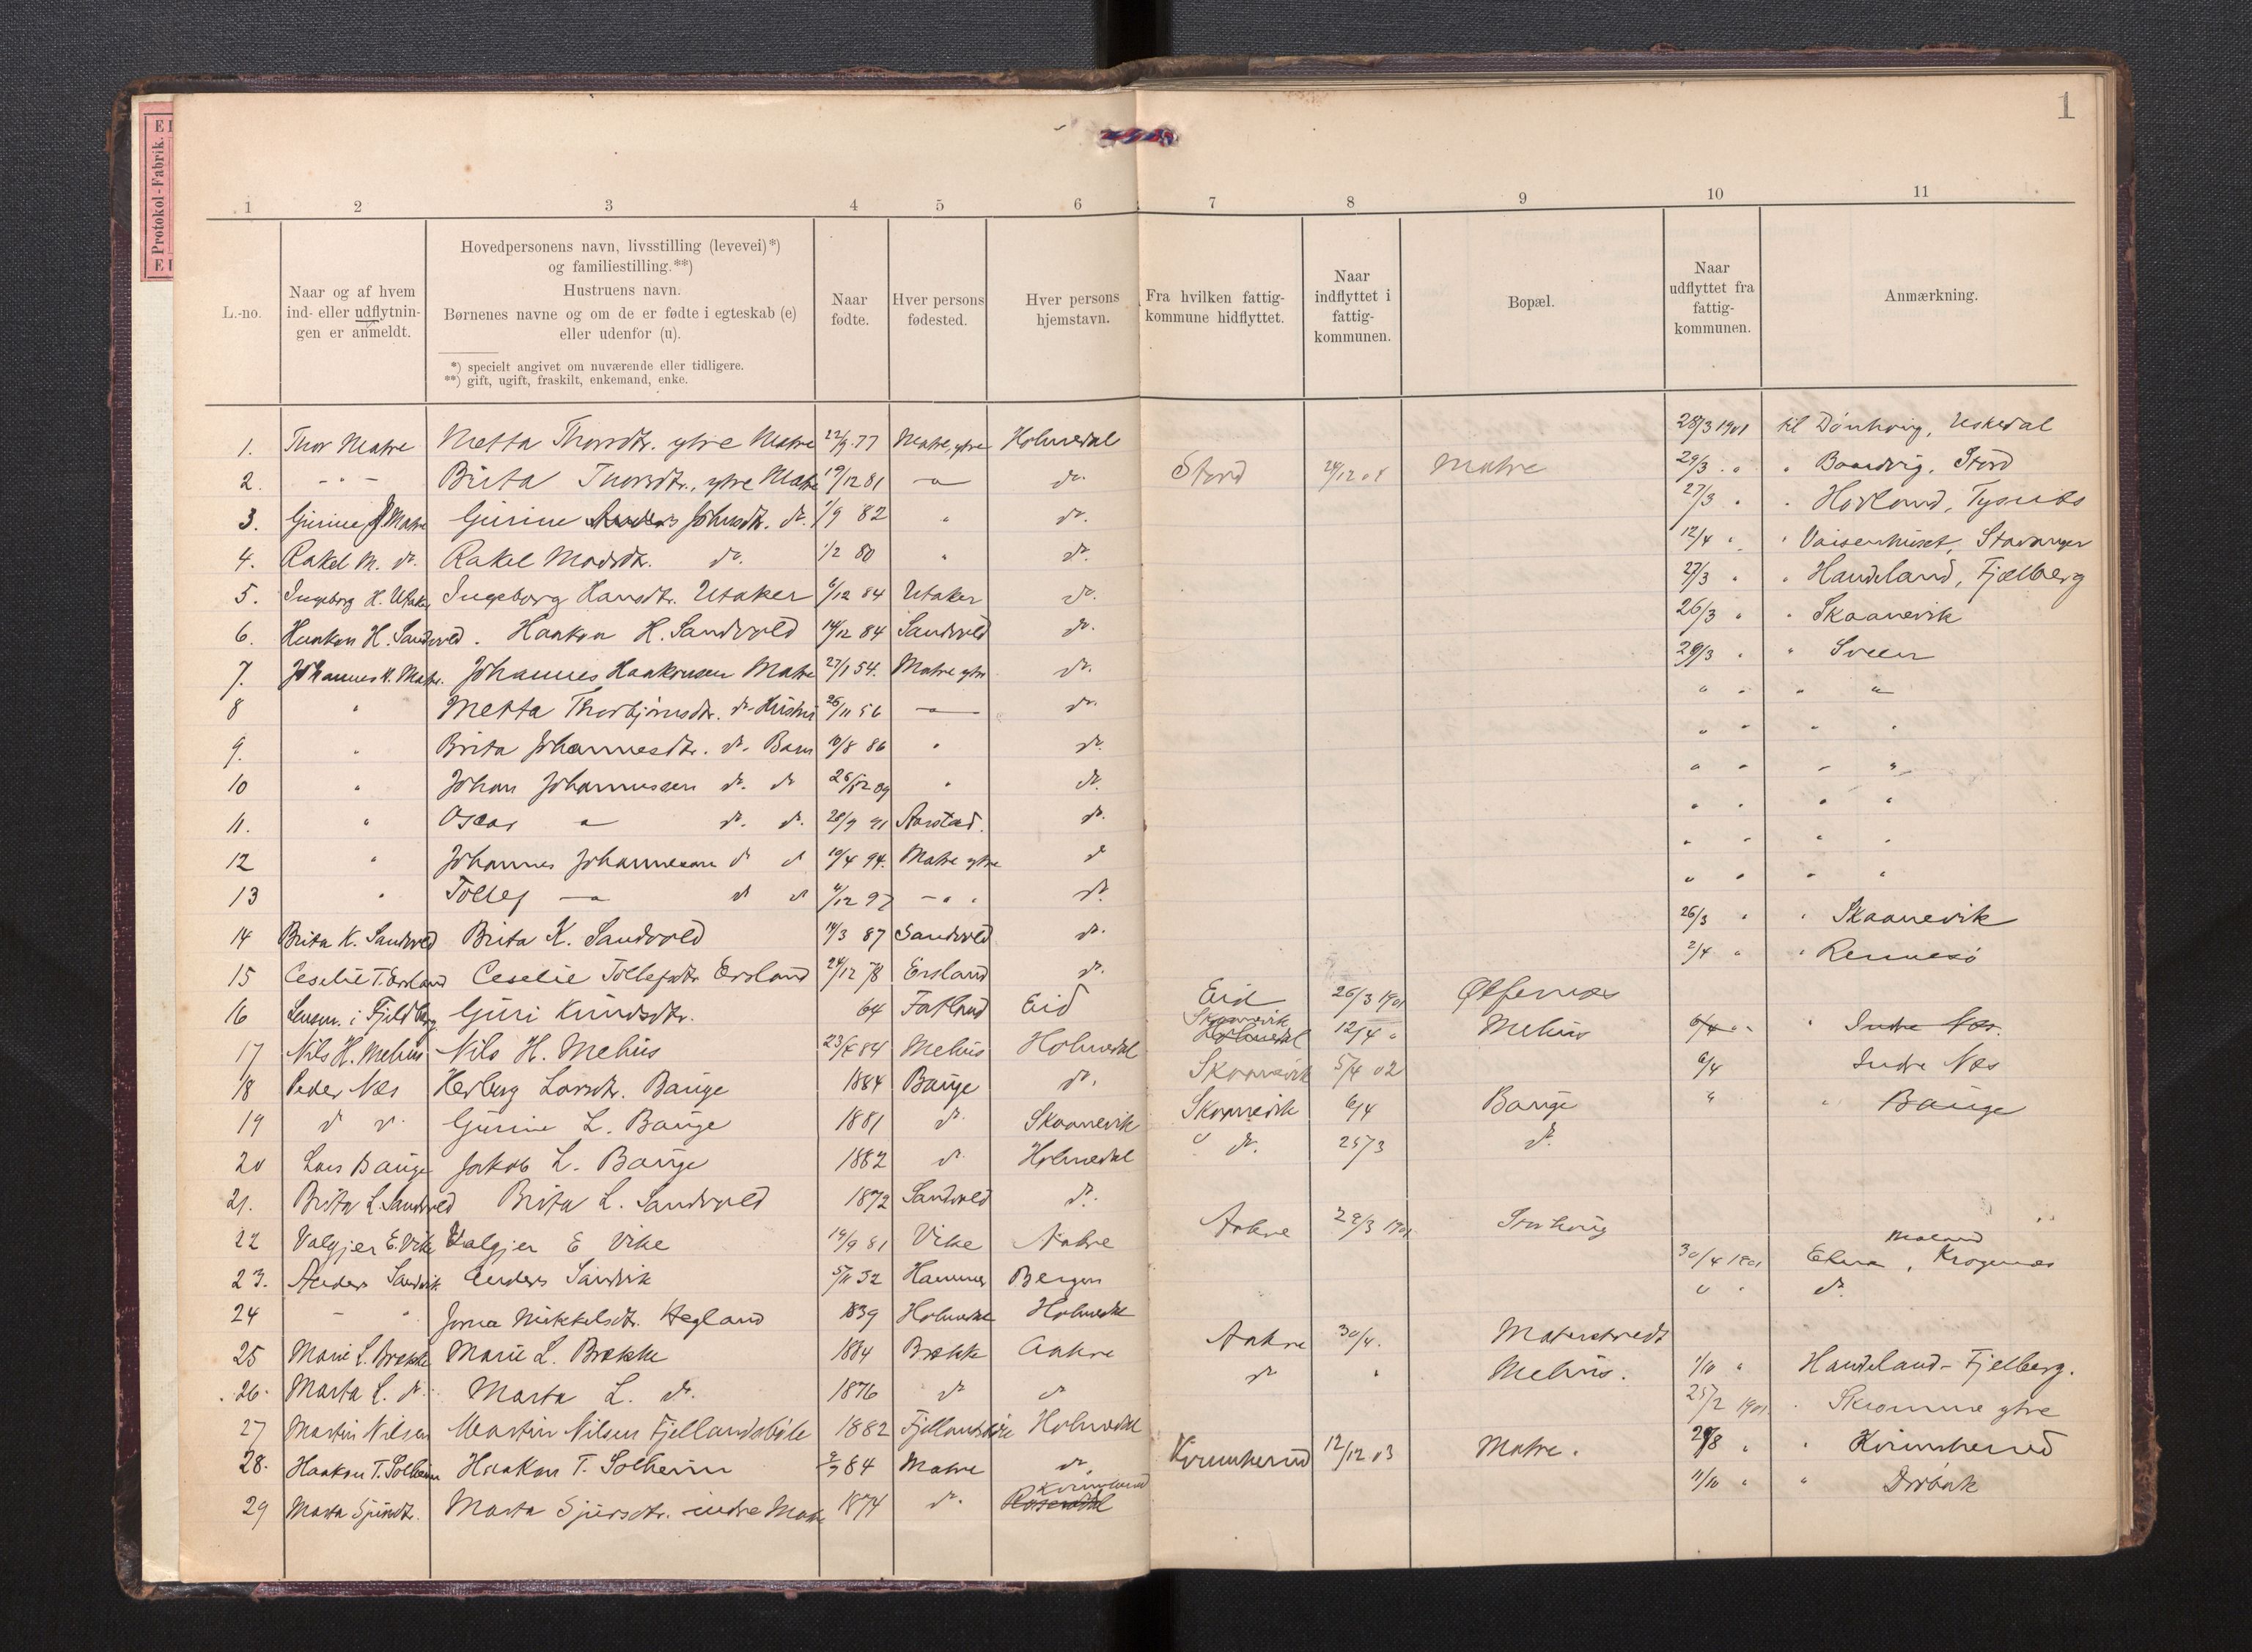 1
EI Protokol-Fabrik. EI
1 2 3 4 5 6 7 8 9 10 11
L.-no.
Naar og af hvem ind- eller udflytnin- gen er anmeldt.
Hovedpersonens navn, livsstilling (levevei)*)
og familiestilling.**)
Hustruens navn.
Børnenes navne og om de er fødte i egteskab (e)
eller udenfor (u).
*) specielt angivet om nuværende eller tidligere.
**) gift, ugift, fraskilt, enkemand, enke.
Naar fødte.
Hver persons fødested.
Hver persons hjemstavn.
Fra hvilken fattig- kommune hidflyttet.
Naar indflyttet i fattig- kommunen.
Bopæl.
Naar udflyttet fra fattig- kommunen.
Anmærkning.
1. Thor Matre Metta Thorsdtr. ytre Matre 22/9 77 Matre, ytre Holmedal 28/3 1901 til Dønhaug, Uskedal
2. - " - Brita Thorsdtr., ytre Matre 19/12 81 - " - do. Stord 24/12 01 Matre 29/3 " " Baardvig, Stord
3. Gurine J. Matre Gurine Anders Johnsdtr. do. 1/9 82 " do. 27/3 " " Hovland, Tysnes
4. Rakel M. do. Rakel Madsdtr. do. 1/2 80 " do. 12/4 " " Vaisenhuset, Stavanger
5. Ingeborg H. Utaker Ingeborg Hansdtr. Utaker 6/12 84 Utaker do. 27/3 " " Handeland, Fjælberg
6. Haakon H. Sandvold. Haakon H. Sandvold 14/12 84 Sandvold do. 26/3 " " Skaanevik
7. Johannes H. Matre. Johannes Haakonsen Matre 27/1 54. Matre ytre do. 29/3 " " Sveen
8 " Metta Thorbjørnsdtr. do. Hustru 26/11 56 - " - do. " " " "
9. " Brita Johannesdtr. do. Barn 10/8 86 " do. " " " "
10 " Johan Johannessen do. do 26/12 89 " do. " " " "
11. " Oscar " do. do. 28/9 91 Aarstad. do. " " " "
12 " Johannes Johannessen do do 10/4 94. Matre ytre do " " " "
13 " Tollef - " do do 4/12 97 - " " do. " " " "
14 Brita K. Sandvold Brita K. Sandvold 14/3 87 Sandvold do. 26/3 " " Skaanevik
15 Ceselie T. Ersland Ceselie Tollefsdtr Ersland 24/12 78 Ersland do. 2/4 " " Rennesø
16 Lensm. i Fjeldberg Guri Knudsdtr. 64 Fatland Eid Eid 26/3 1901 Ølfernes
17 Nils H. Mehus Nils H. Mehus 84 Mehus Holmedal Skaanevik Holmedal 12/4 " Mehus 6/4 " " " Indre Næs.
18 Peder Næs Herborg Larsdtr. Bauge 1884 Bauge do. Skaanevik 5/4 02 6/4 Indre Næs
19 do do. Gurine L. Bauge 1881 do. Skaanevik Skaanevik 6/4 Bauge " " Bauge
20 Lars Bauge Jakob L. Bauge 1882 do. Holmedal " do. 25/3 do.
21. Brita L. Sandvold Brita L. Sandvold 1872 Sandvold do.
22 Valgjer E. Vike Valgjer E Vike 19/9 81 Vike Aakre Aakre 29/3 1901
23. Anders Sandvik Anders Sandvik 5/11 32 Hammer Bergen 30/4 1901 Etne, Krogenæs
24 - " Mikkelsdtr. Hegland 1839 Holmedal Holmedal " " do.
25 Marie L. Brekke Marie L. Brekke 1884 Brekke Aakre Aakre 30/4.
26. Marta L. do. Marta L. do. 1876 do do do " Mehus. 1/11 " Handeland - Fjelberg.
27 Martin Nilsen Martin Nilsen Fjellandsbøle 1882 Fjellandsbøle Holmedal 25/2 1901 " Skromme ytre
28. Haakon T. Solheim Haakon T. Solheim 84 Matre do Kvinnherred 12/12 03 Matre. 29/8 " " Kvinnherred
29 Marta Sjursdtr. Marta Sjursdtr. indre Matre 1874 do. Rosendal Kvinnherred 11/11 " " Drøbak